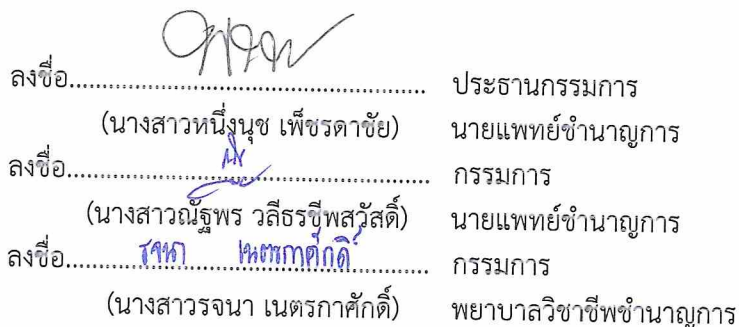 ลงชื่อ............................................................ ประธานกรรมการ
(นางสาวหนึ่งนุช เพ็ชรดาชัย) นายแพทย์ชำนาญการ
ลงชื่อ............................................................ กรรมการ
(นางสาวณัฐพร วลีธรชีพสวัสดิ์) นายแพทย์ชำนาญการ
ลงชื่อ.......... รจนา เนตรกาศักดิ์ .......... กรรมการ
(นางสาวรจนา เนตรกาศักดิ์) พยาบาลวิชาชีพชำนาญการ